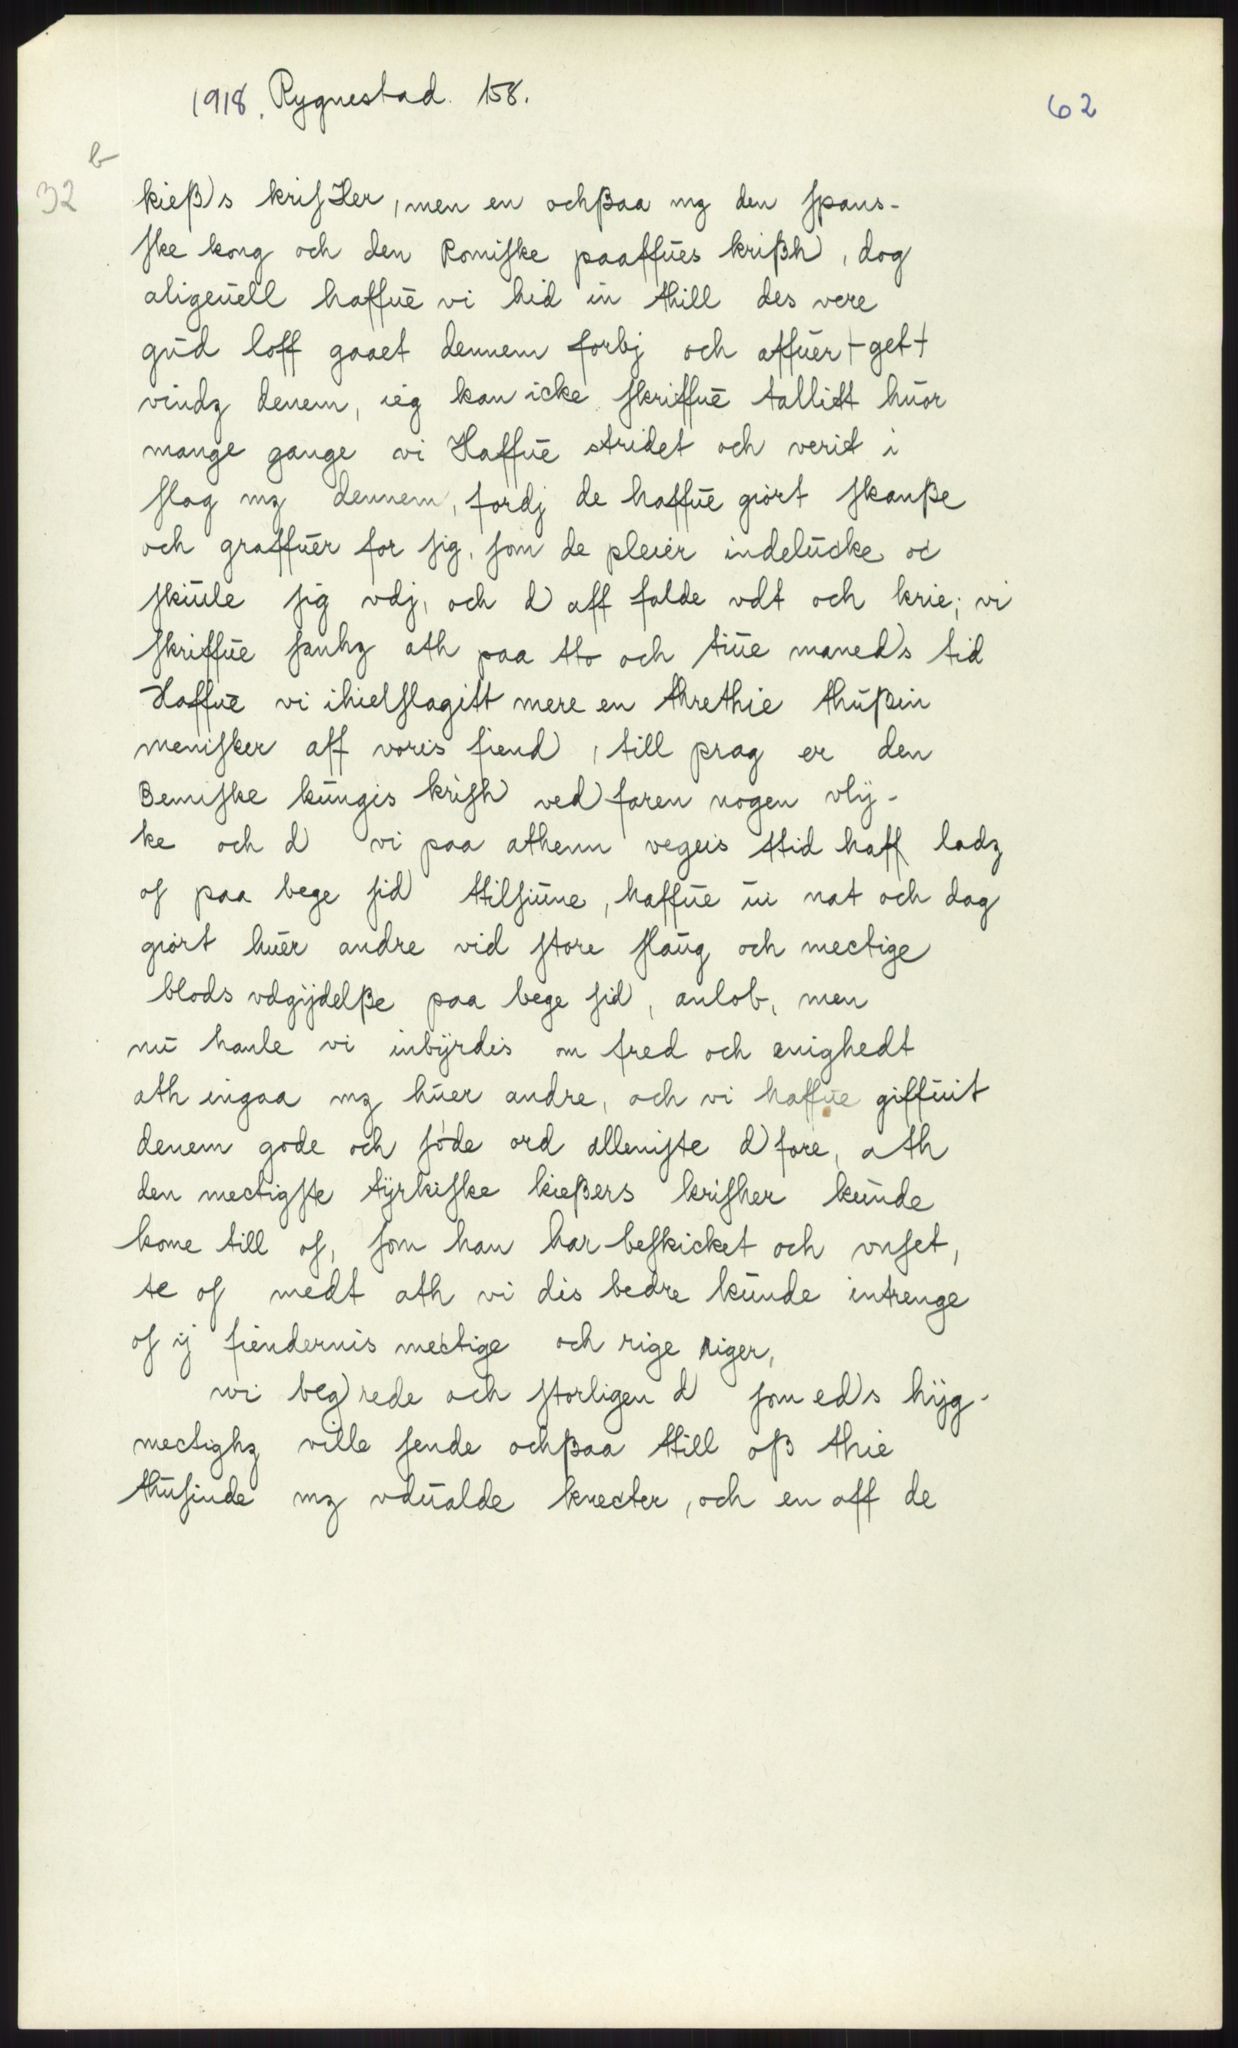 1918. Rygnestad. 158.
62
b
32
kieß)s krisHer, men en ochßaa mz den spans-
ske kong och den Romiske paaffues krißh, dog
aligeuell haffuē vi hid in thill des vere
gud loff gaaet dennem forbj och affuer + get +
vindz denem, ieg kan icke skriffuē tallitt huor
mange gange vi Haffuē stridet och verit i
slag mz dennem, fordj de haffuē giort skanße
och graffuer for sig, som de pleier indelucke oc
skiule sig vdj, och d) aff falde vdt och krie; vi
skriffuē sanhz ath paa tto och tiue maned)s tid
Haffuē vi ihielslagitt mere en threthie thußin
menisker aff voris fiend), till prag er den
Bemiske kungis krish) ved)faren nogen vly-
ke och d) vi paa athenn vegeis ttid haff ladz
os paa bege sid) ttilsiune, haffuē ui nat och dag
giort huer andre vid store slaug och mectige
blods vdgÿdelße paa bege sid), anlob, men
nu hanle vi inbÿrdis om fred och enighedt
ath ingaa mz huer andre, och vi haffue giffuit
denem gode och søde ord alleniste d)fore, ath
den mectigste tÿrkiske kießers krisher kunde
kome till os, som han har beskicket och vnset,
te os medt ath vi dis bedre kunde intrenge
os ij fiendernis mectige och rige riger,
wi beg)rede och storligen d) som ed)s hÿg-
mectighz ville sende ochßaa ttill oß thie
thusinde mz vdualde knecter, och en aff de